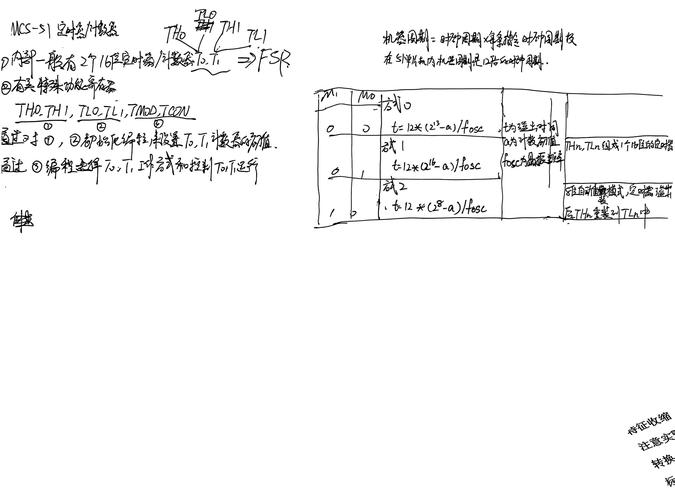 MCS-51 定时器/计数器
TH0 TL0 TH1 TL1
① 内部一般有2个16位定时器/计数器 T0, T1 ⇒ FSR
② 有关特殊功能寄存器
TH0, TH1, TL0, TL1, TMOD, TCON
① ② ③
通过对①, ②初始化编程, 来设置T0, T1计数器的初值.
通过③编程选择T0, T1工作方式和控制T0, T1运行
机器周期 = 时钟周期 × 每条指令时钟周期数
在51单片机内机器周期是12倍的时钟周期.
M1 M0
方式0
0 0 t=12*(2¹³-a)/fosc
t为溢出时间
a为计数初值
fosc为晶振频率
方式1
0 1 t=12*(2¹⁶-a)/fosc
THn, TLn组成1个16位的定时器
方式2
1 0 t=12*(2⁸-a)/fosc
8位自动重装模式, 定时器溢出
后THn重装到TLn中
特征收缩
注意实
转换